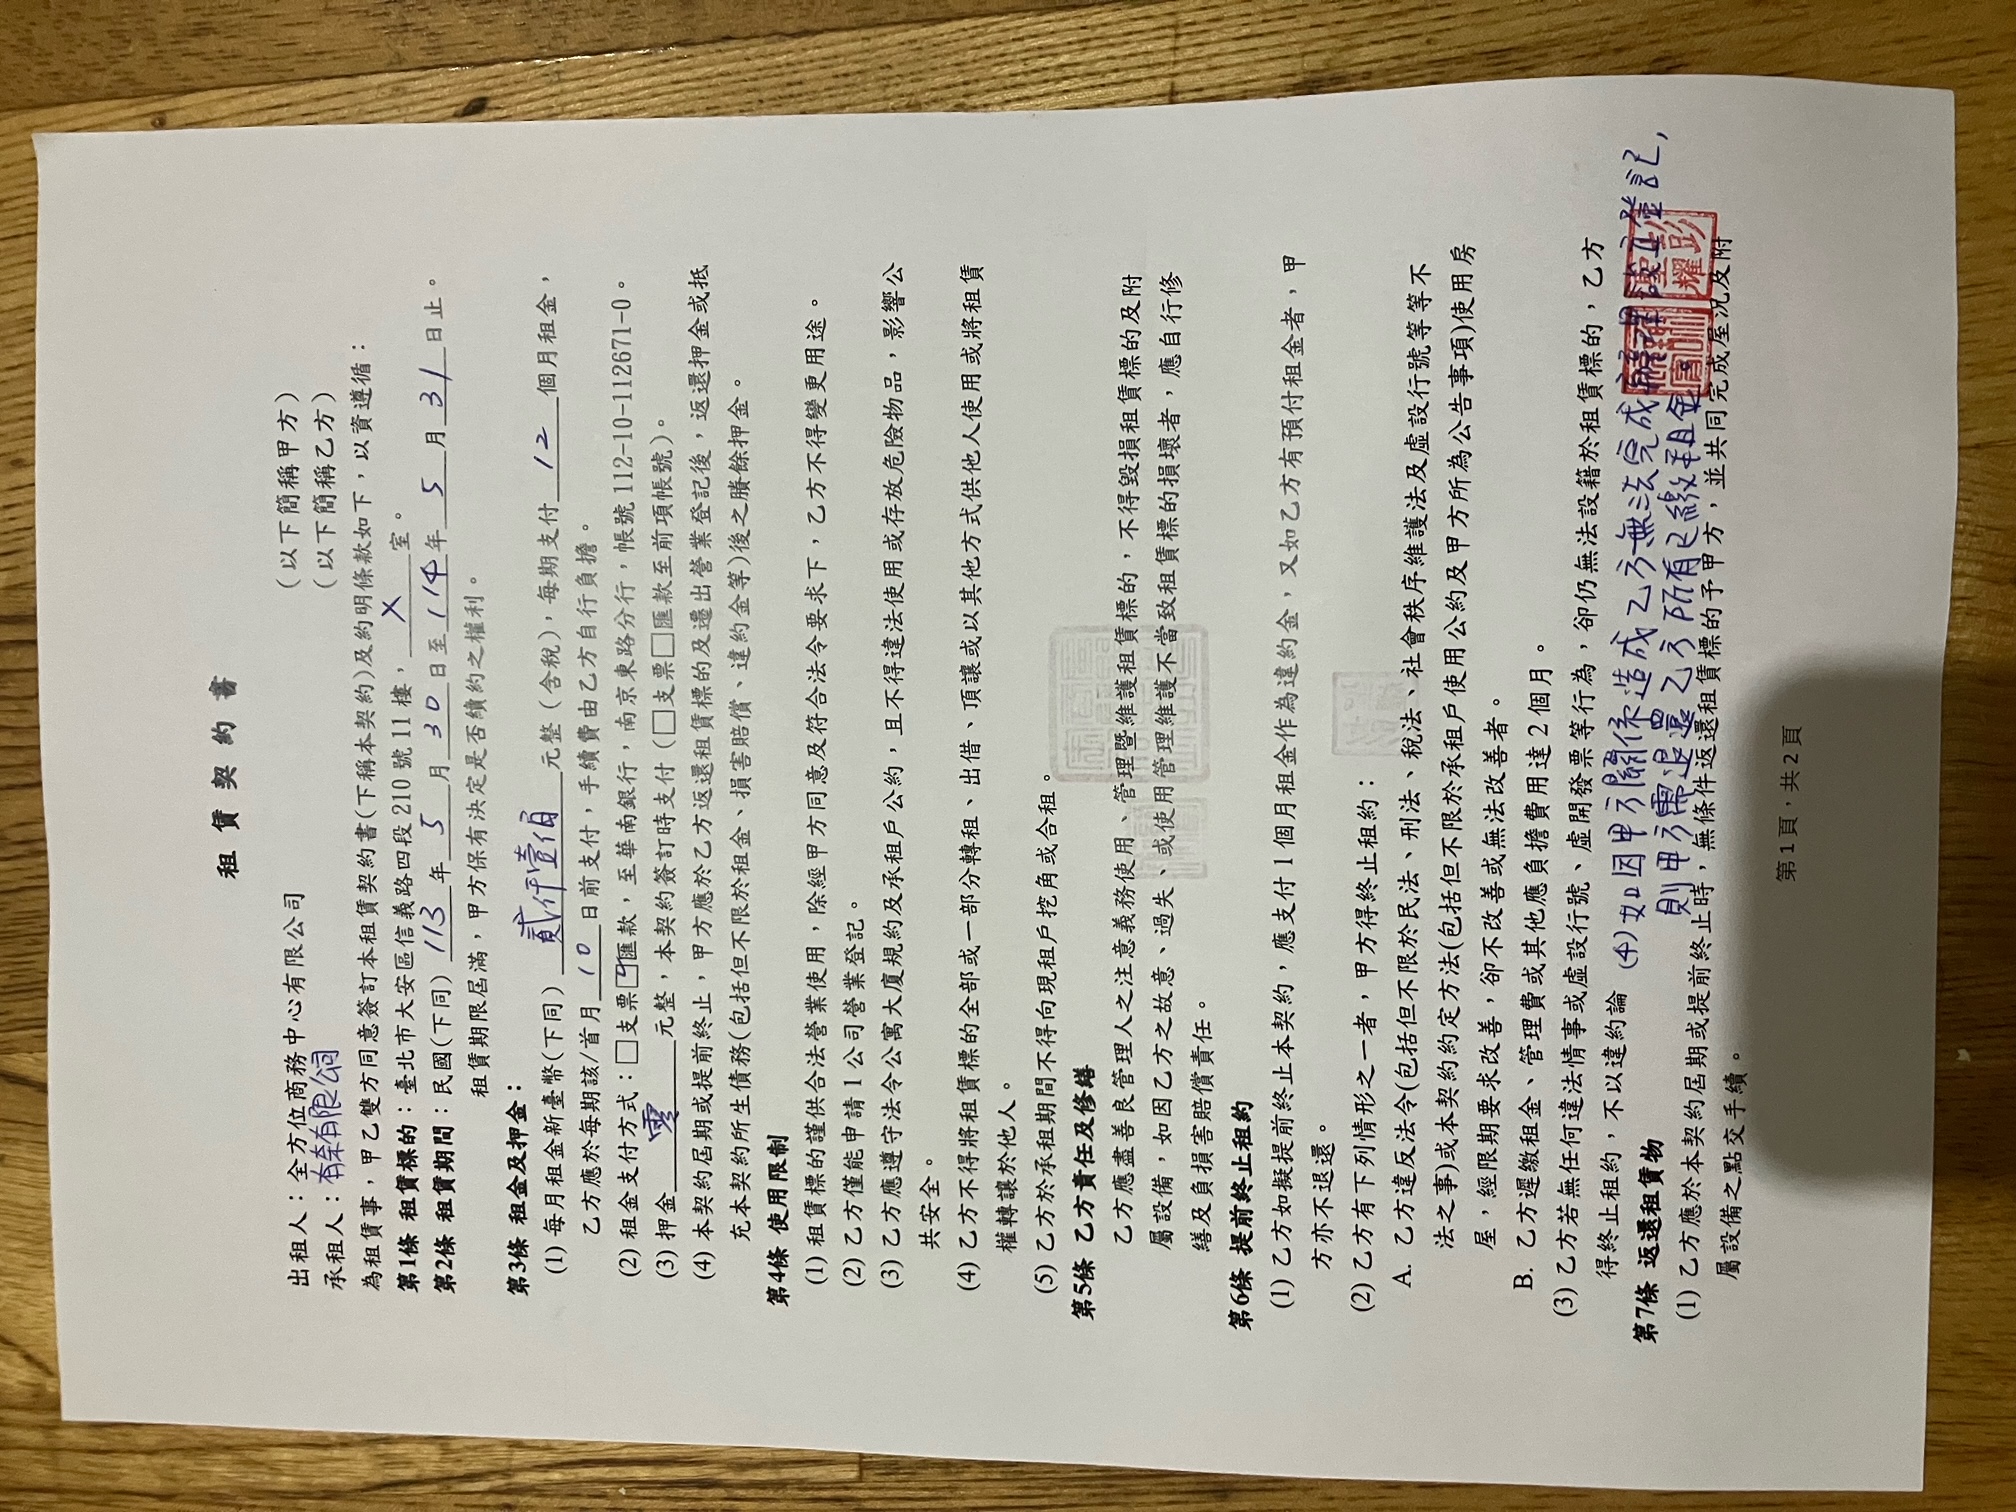 租賃契約書
出租人：全方位商務中心有限公司 （以下簡稱甲方）
承租人：有奈有限公司 （以下簡稱乙方）
為租賃事，甲乙雙方同意簽訂本租賃契約書(下稱本契約)及約明條款如下，以資遵循：
第1條 租賃標的：臺北市大安區信義路四段 210 號 11 樓，X室。
第2條 租賃期間：民國(下同) 113 年 5 月 30 日至 114 年 5 月 31 日止。
租賃期限屆滿，甲方保有決定是否續約之權利。
第3條 租金及押金：
(1) 每月租金新臺幣(下同) 貳仟壹佰 元整（含稅），每期支付 12 個月租金，
乙方應於每期該/首月 10 日前支付，手續費由乙方自行負擔。
(2) 租金支付方式：□支票☑匯款，至華南銀行，南京東路分行，帳號 112-10-112671-0。
(3) 押金 零 元整，本契約簽訂時支付（□支票□匯款至前項帳號）。
(4) 本契約屆期或提前終止，甲方應於乙方返還租賃標的及遷出營業登記後，返還押金或抵
充本契約所生債務(包括但不限於租金、損害賠償、違約金等)後之賸餘押金。
第4條 使用限制
(1) 租賃標的謹供合法營業使用，除經甲方同意及符合法令要求下，乙方不得變更用途。
(2) 乙方僅能申請 1 公司營業登記。
(3) 乙方應遵守法令公寓大廈規約及承租戶公約，且不得違法使用或存放危險物品，影響公
共安全。
(4) 乙方不得將租賃標的全部或一部分轉租、出借、頂讓或以其他方式供他人使用或將租賃
權轉讓於他人。
(5) 乙方於承租期間不得向現租戶挖角或合租。
第5條 乙方責任及修繕
乙方應盡善良管理人之注意義務使用、管理暨維護租賃標的，不得毀損租賃標的及附
屬設備，如因乙方之故意、過失、或使用管理維護不當致租賃標的損壞者，應自行修
繕及負損害賠償責任。
第6條 提前終止租約
(1) 乙方如擬提前終止本契約，應支付 1 個月租金作為違約金，又如乙方有預付租金者，甲
方亦不退還。
(2) 乙方有下列情形之一者，甲方得終止租約：
A. 乙方違反法令(包括但不限於民法、刑法、稅法、社會秩序維護法及虛設行號等等不
法之事)或本契約約定方法(包括但不限於承租戶使用公約及甲方所為公告事項)使用房
屋，經限期要求改善，卻不改善或無法改善者。
B. 乙方遲繳租金、管理費或其他應負擔費用達 2 個月。
(3) 乙方若無任何違法情事或虛設行號、虛開發票等行為，卻仍無法設籍於租賃標的，乙方
得終止租約，不以違約論
(4) 如因甲方關係造成乙方無法完成辦理設立登記，
則甲方需退還乙方所有已繳租金。
第7條 返還租賃物
(1) 乙方應於本契約屆期或提前終止時，無條件返還租賃標的予甲方，並共同完成屋況及附
屬設備之點交手續。
第 1 頁，共 2 頁